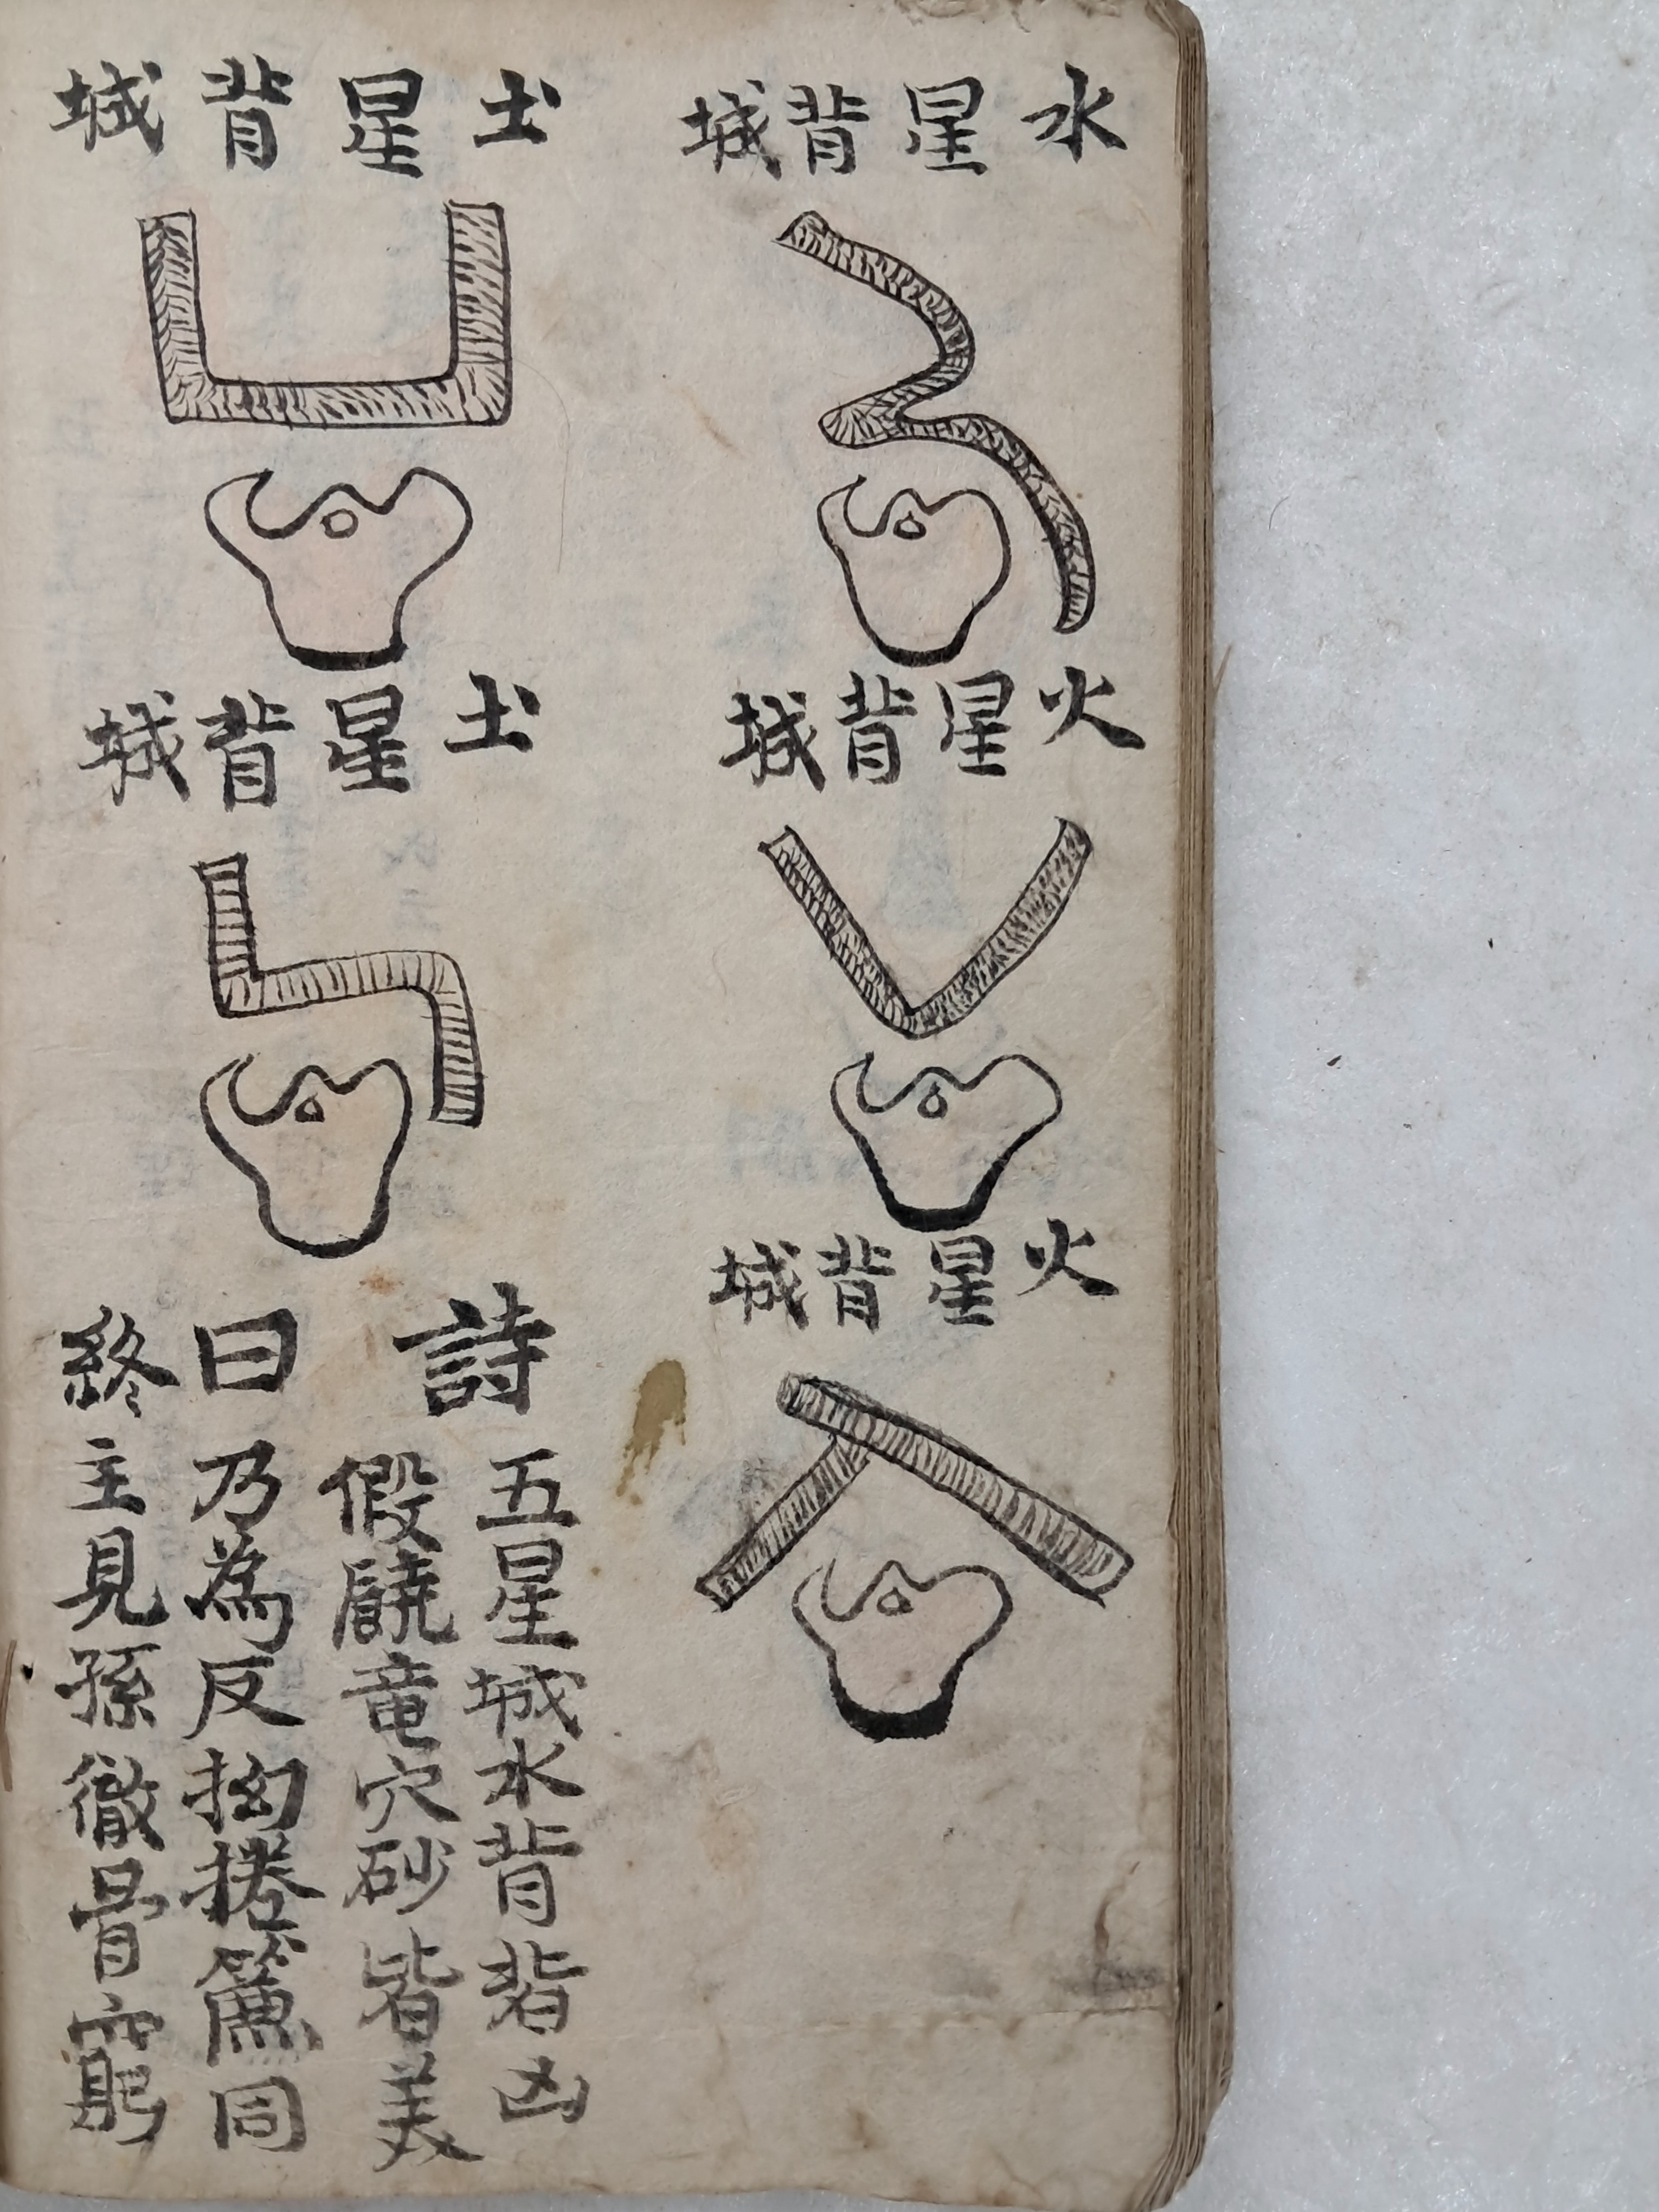 水星背城
火星背城
火星背城
圡星背城
圡星背城
詩曰
五星城水背皆凶
假饒竜穴砂皆美
乃為反拗捲簾同
終主見孫徹骨窮